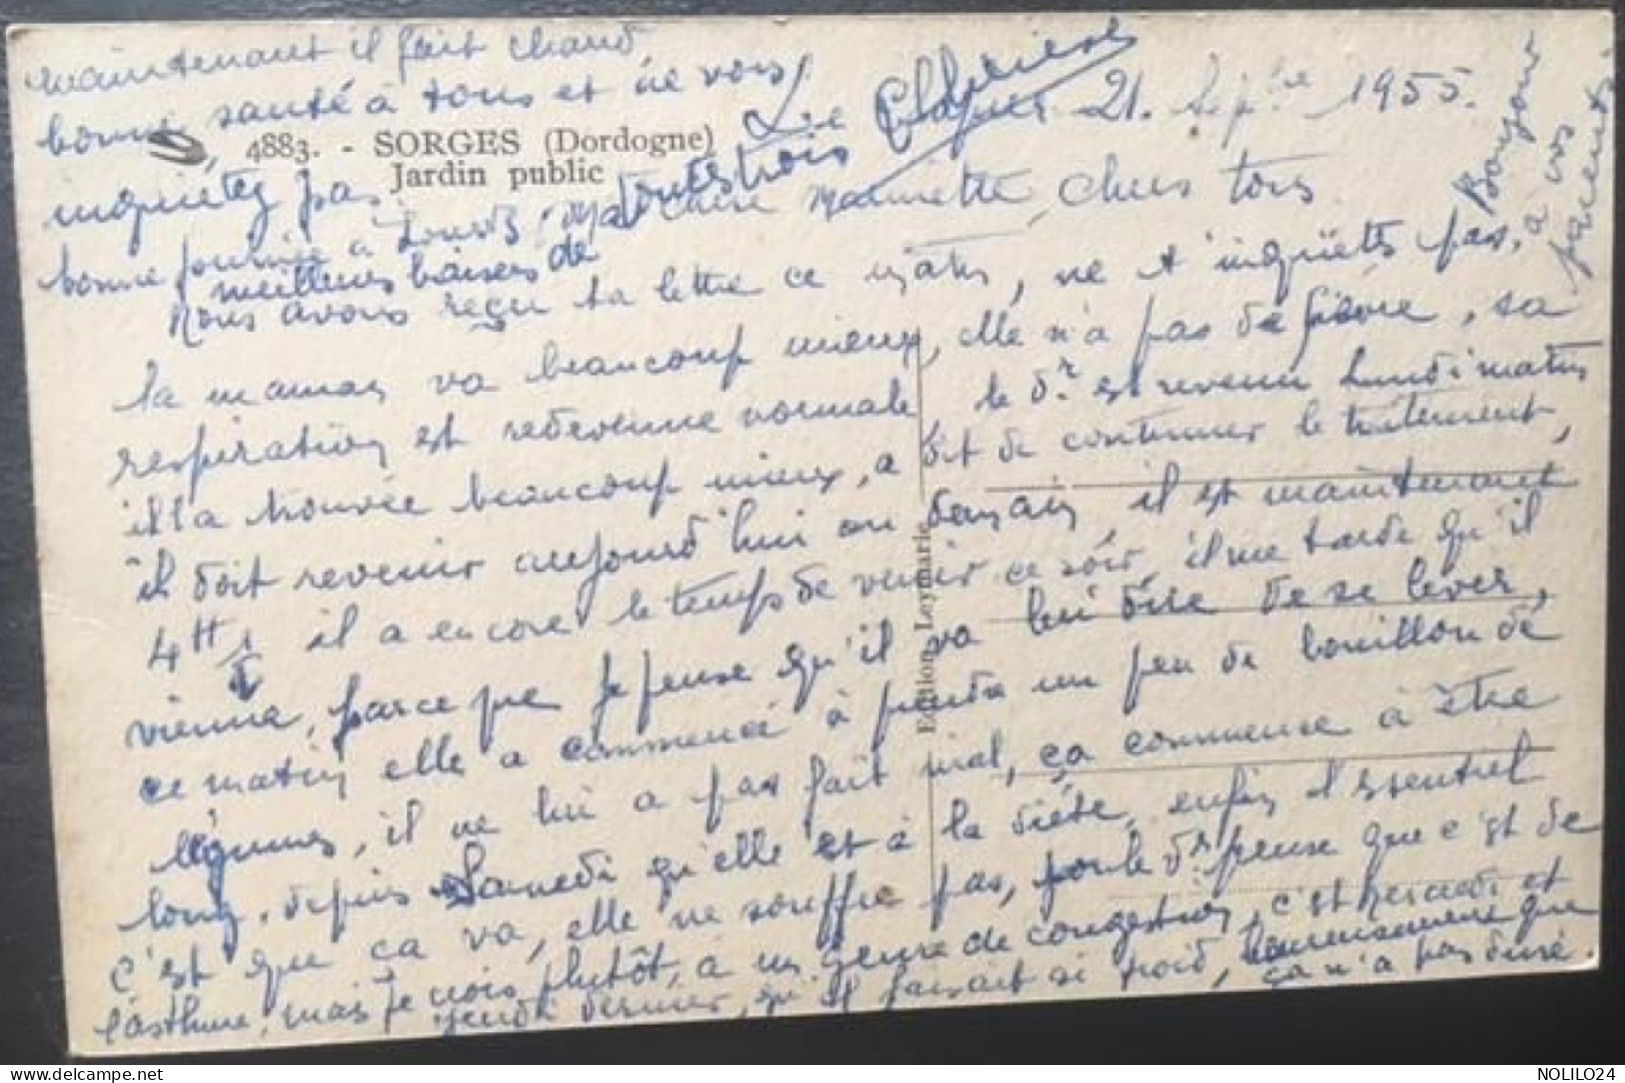 maintenant il fait chaud,
bonne santé à tous et ne vous
inquiétez pas
bonne journée à tous
meilleurs baisers de
toutes trois
4883. - SORGES (Dordogne)
Jardin public
21. Sepbre 1955.
Bonjour
à vos
parents.
Chère Mariette, Chers tous
Nous avons reçu ta lettre ce matin, ne t'inquiètes pas,
ta maman va beaucoup mieux, elle n'a pas de fièvre, sa
respiration est redevenue normale, le Dr. est revenu Lundi matin
il l'a trouvée beaucoup mieux, a dit de continuer le traitement,
il doit revenir aujourd'hui ou demain, il est maintenant
4H½ il a encore le temps de venir ce soir, il me tarde qu'il
vienne, parce que je pense qu'il va lui dire de se lever,
ce matin elle a commencé à prendre un peu de bouillon de
légumes, il ne lui a pas fait mal, ça commence à être
long, depuis Samedi qu'elle est à la diète, enfin l'essentiel
c'est que ça va, elle ne souffre pas, le Dr pense que c'est de
l'asthme, mais je crois plutôt, à un genre de congestion, c'est Mercredi et
jeudi dernier, qu'il faisait si froid, heureusement que
ça n'a pas duré.
Edition Leymarie
NOLILO24
delcampe.net